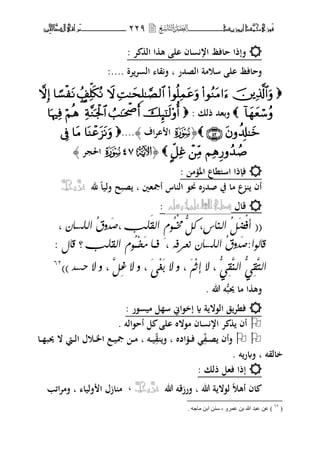 ٢٢٩
وإذا حافظ الإنسان على هذا الذكر :
وحافظ على سلامة الصدر ، ونقاء السريرة :....
﴿ وَالَّذِينَ ءَامَنُوا وَعَمِلُوا الصَّالِحَاتِ لَا نُكَلِّفُ نَفْسًا إِلَّا
وُسْعَهَا ﴾ وبعد ذلك : ﴿ أُولَئِكَ أَصْحَابُ الْجَنَّةِ هُمْ فِيهَا
خَالِدُونَ ﴾ الأعراف ....﴿ وَنَزَعْنَا مَا فِي
صُدُورِهِم مِّنْ غِلٍّ ﴾ ٤٧ الحجر
فإذا استطاع المؤمن :
أن ينزع ما في صدره نحو الناس أجمعين ، يصبح ولياً لله
قال :
(( أَفْضَلُ النَّاسِ، كُلُّ مَخْمُومِ القَلْبِ، صَدُوقُ اللسان ،
قالوا: صَدُوقُ اللسان نعرفه ، فما مَخْمُومُ القلب ؟ قال :
التَّقِيُّ النَّقِيُّ، لا إِثْمَ ، ولا بَغْيَ ، ولا غِلَّ ، ولا حسد ))٦٢
وهذا ما يحبُّه الله .
فطريق الولاية يا إخواني سهل ميسور :
أن يذكر الإنسان مولاه على كل أحواله .
وأن يصفِّي فؤاده ، وينقِّيه ، من جميع الخلال التي لا يحبها
خالقه ، وباريه .
إذا فعل ذلك :
كان أهلاً لولاية الله ، ورزقه الله ، منازل الأولياء ، ومراتب
( ٦٢ ) عن عبد الله بن عمرو ، سنن ابن ماجه .